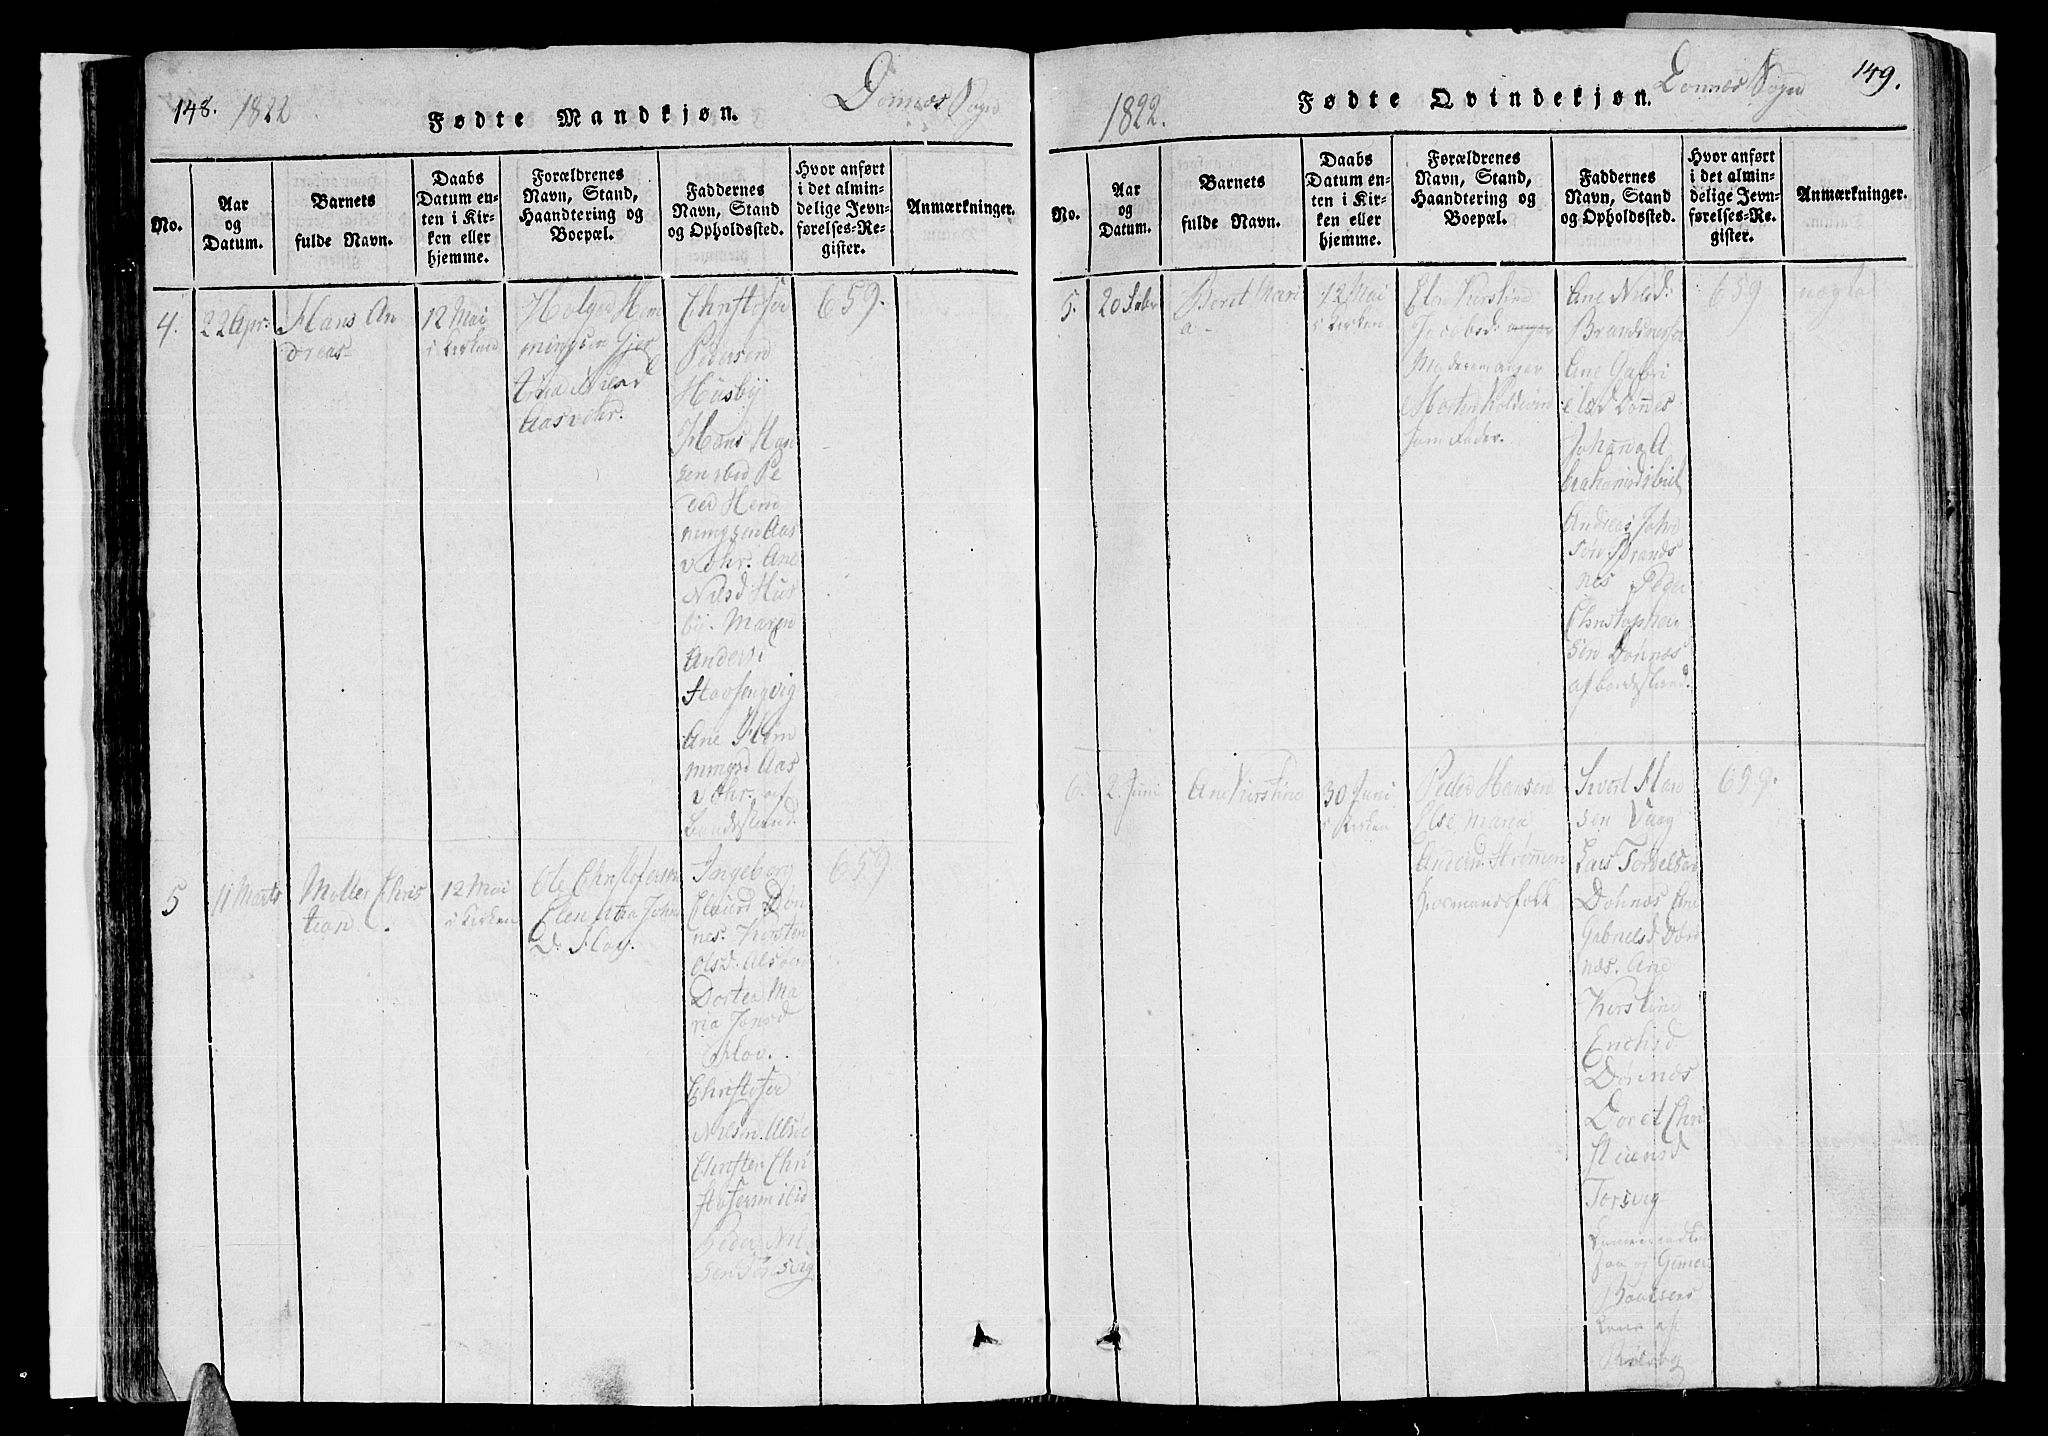 148. 1822
Fødte Mandkjøn.
Dønnæs Sogn
No.
Aar
og
Datum.
Barnets
fulde Navn.
Daabs
Datum en-
ten i Kir-
ken eller
hjemme.
Forældrenes
Navn, Stand,
Haandtering og
Boepæl.
Faddernes
Navn, Stand
og Opholdssted.
Hvor anført
i det almin-
delige Jevn-
førelses-Re-
gister.
Anmærkninger.
4.
22 Apr:
Hans An
dreas
12 Mai
i Kirken
Holger Hem
mingsen Gjer
Aasvohr.
Christofer
Pedersen
Husby
Hans Han
sen ibid Pe
der Hem
mingsen Aas
vohr. Ane
Nilsd Hus
by. Maren
Andersd
Stavsengvig
Ane Hem
mingsd Aas
vohr. af
bondestand.
659.
5
11 Marts
Moller Chris
tian.
12 Mai
i Kirken
Ole Christofersen
Elen Johns
D. Slov.
Ingeborg
Døn
nes. Kersten
Olsd.
Dortea Ma
ria Jonsd
Slov.
Christofer
Nilsen
Christen Chri
stofersen ibid
Peder Nil
sen Torsvig
659
1822.
Fødte Qvindekjøn.
Dønnæs Sogn
149.
No.
Aar
og
Datum.
Barnets
fulde Navn.
Daabs
Datum en-
ten i Kir-
ken eller
hjemme.
Forældrenes
Navn, Stand,
Haandtering og
Boepæl.
Faddernes
Navn, Stand
og Opholdssted.
Hvor anført
i det almin-
delige Jevn-
førelses-Re-
gister.
Anmærkninger.
5.
20 Febr
Beret Mari
a
12 Mai
i Kirken
Elen Kirstina
Jacobsd:
Moderen angav
Morten
som Fader.
Ane Nilsd:
Ane Gabri
elsd Dønnes
Johana A
brahamsd ibid
Andreas John
sen Brands
nes Peder
Christopher
sen Dønnæs
af bondestand.
659
uægte
6.
2. Juni
Ane Kirstine
30 Juni
i Kirken
Peder Hansen
Else Maria
Andersd Strømmen
Huusmandsfolk
Sivert Han
sen Vaag
Lars
Dønnæs Ane
Gabrielsd Døn
næs. Ane
Kirstine
Erichsd
Dønnæs
Doret Chri
stiensd
Torsvig
659.